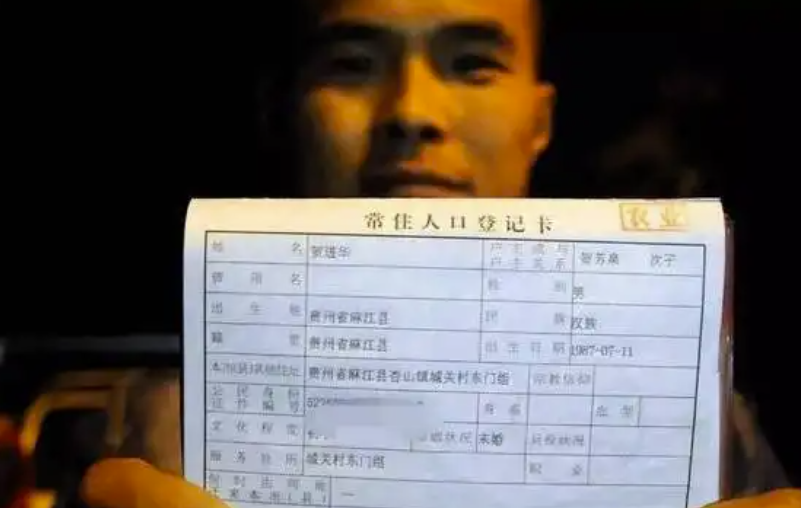 常住人口登记卡 农业
姓名 贺道华 户主或与户主关系 贺芳泉 次子
曾用名 性别 男
出生地 贵州省麻江县 民族 汉族
籍贯 贵州省麻江县 出生日期 1987-07-11
贵州省麻江县杏山镇城关村东门组 宗教信仰
公民身份证件编号 52 身高 血型
文化程度 婚姻状况 未婚 兵役状况
服务处所 城关村东门组 职业
何时由何地迁来本市(县) 一